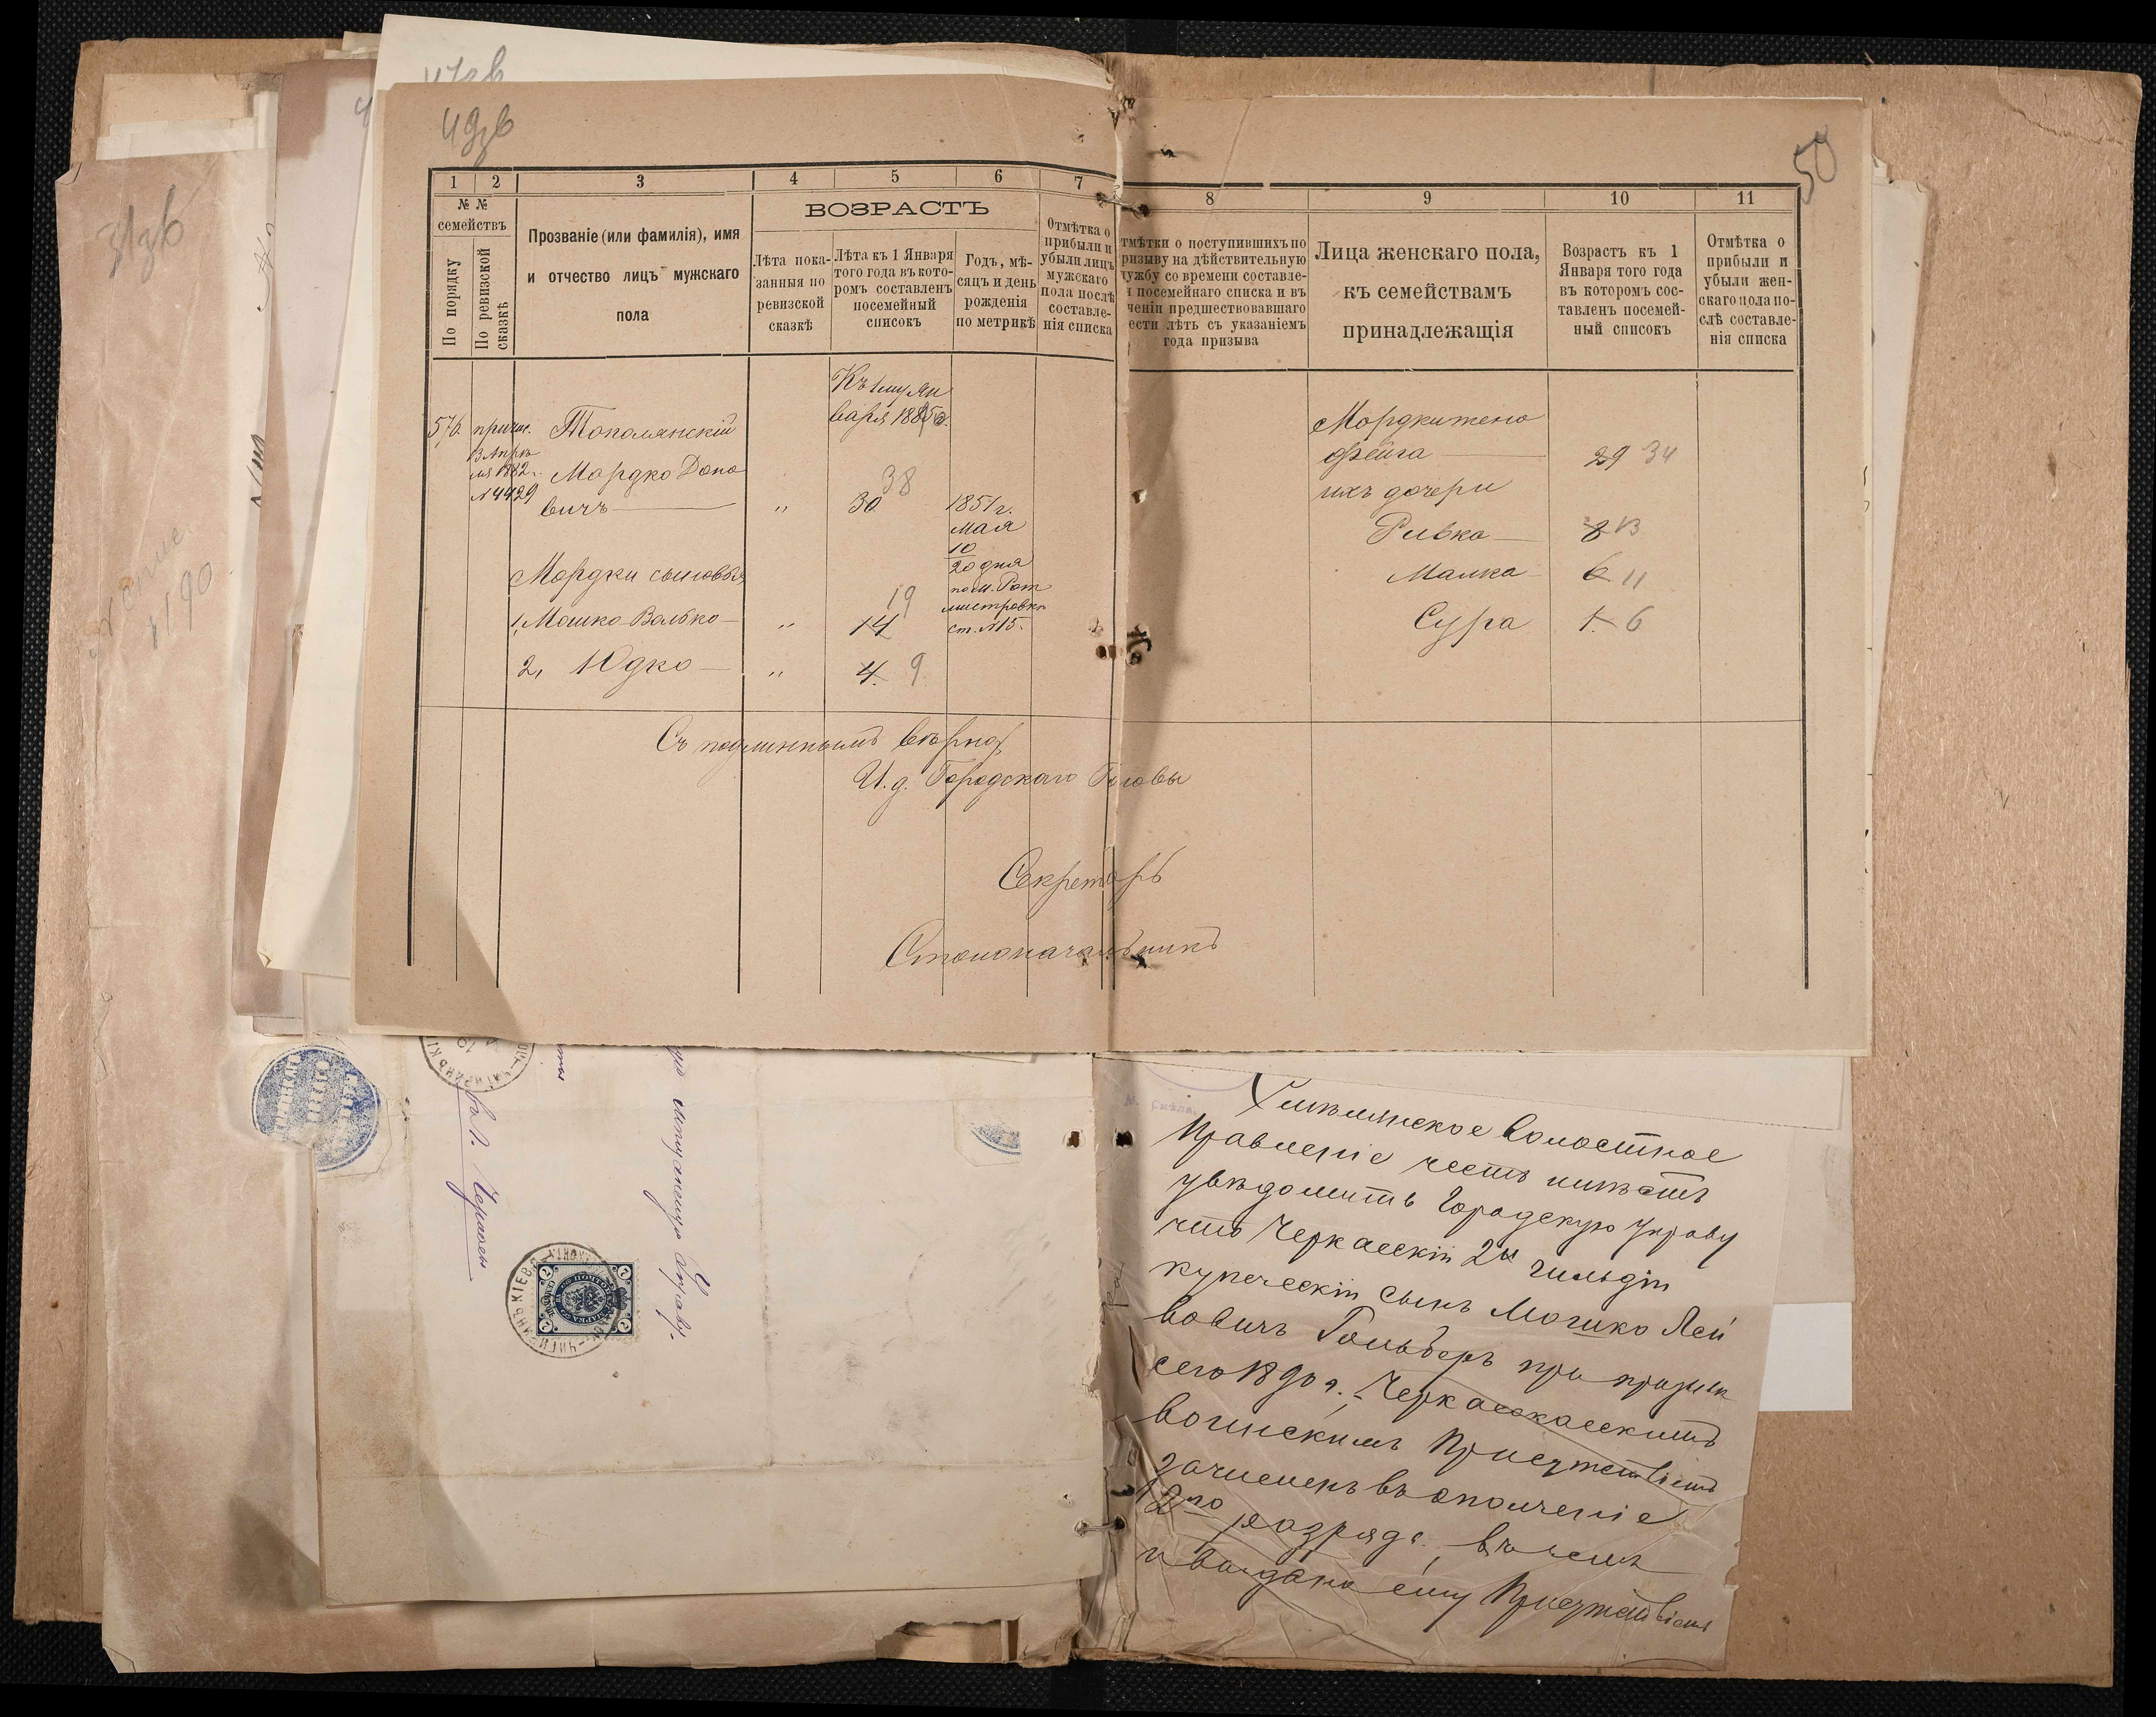 49зв
50
31зв
1 2 3 4 5 6 7 8 9 10 11
№ №
семействъ
По порядку
По ревизской сказкѣ
Прозваніе (или фамилія), имя
и отчество лицъ мужскаго
пола
ВОЗРАСТЪ
Лѣта пока-
занныя по
ревизской
сказкѣ
Лѣта къ 1 Января
того года въ кото-
ромъ составленъ
посемейный
списокъ
Годъ, мѣ-
сяцъ и день
рожденія
по метрикѣ
Отмѣтка о
прибыли и
убыли лицъ
мужскаго
пола послѣ
составле-
нія списка
тмѣтки о поступившихъ по
ризыву на дѣйствительную
ужбу со времени составле-
я посемейнаго списка и въ
ченіи предшествовавшаго
ести лѣтъ съ указаніемъ
года призыва
Лица женскаго пола,
къ семействамъ
принадлежащія
Возрастъ къ 1
Января того года
въ которомъ сос-
тавленъ посемей-
ный списокъ
Отмѣтка о
прибыли и
убыли жен-
скаго пола по-
слѣ составле-
нія списка
Къ 1му Ян
варя 1885 г.
576. причис. Тополянскій
13 Апрѣ
ля 1882 г.
№4429
Мордко Доно
вичъ „ 30 38
1851 г.
Мая
10
20 дня
по м. Рот
мистровкѣ
ст. №15.
Мордки сыновья
1, Мошко-Волько „ 14 19
2, Юдко „ 4. 9
Мордки жена
Фейга 29 34
ихъ дочери
Ривка 8 13
Малка 6 11
Сура 1. 6
Съ подлиннымъ вѣрно
И. д. Городскаго Головы
Секретарь
Столоначальникъ
1890
въ г. Черкассы
Управу.
Смѣлянское Волостное
Правленіе честь имѣетъ
увѣдомить Городскую Управу
что Черкасскій 2й гильдіи
купеческій сынъ Мошко Лей
бовичъ Гольберъ при призывѣ
сего 1890 г. Черкасскасскимъ
воинскимъ Присутствіемъ
зачисленъ въ ополченіе
2го разряда, въ чемъ
и выдано ему Присутствіемъ